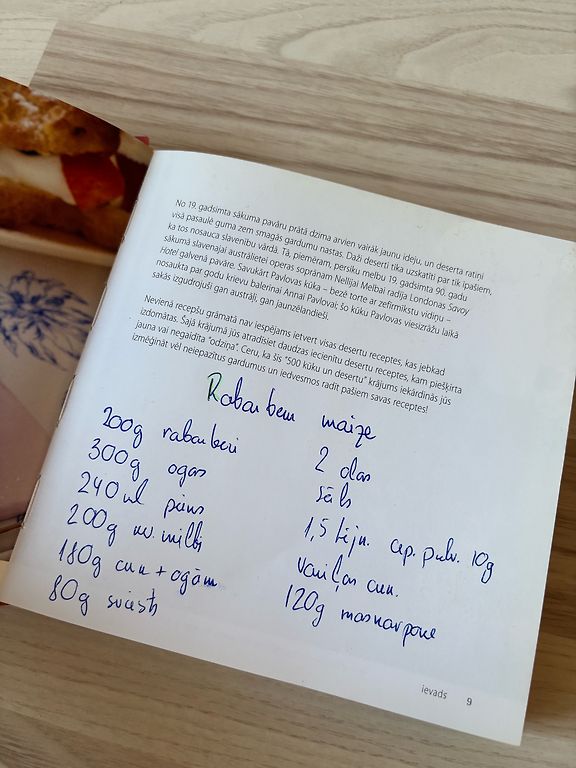 No 19. gadsimta sākuma pavāru prātā dzima arvien vairāk jaunu ideju, un deserta ratiņi
visā pasaulē guma zem smagās gardumu nastas. Daži deserti tika uzskatīti par tik īpašiem,
ka tos nosauca slavenību vārdā. Tā, piemēram, persiku melbu 19. gadsimta 90. gadu
sākumā slavenajai austrālietei operas soprānam Nellijai Melbai radīja Londonas Savoy
Hotel galvenā pavāre. Savukārt Pavlovas kūka – bezē torte ar zefīrmīkstu vidiņu –
nosaukta par godu krievu balerīnai Annai Pavlovai; šo kūku Pavlovas viesizrāžu laikā
sakās izgudrojuši gan austrāļi, gan jaunzēlandieši.
Nevienā recepšu grāmatā nav iespējams ietvert visas desertu receptes, kas jebkad
izdomātas. Šajā krājumā jūs atradīsiet daudzas iecienītu desertu receptes, kam piešķirta
jauna vai negaidīta "odziņa". Ceru, ka šis "500 kūku un desertu" krājums iekārdinās jūs
izmēģināt vēl neiepazītus gardumus un iedvesmos radīt pašiem savas receptes!
Rabarberu maize
200g rabarberi
300g ogas
240ml piens
200g kv. milti
180g cuk + ogām
80g sviests
2 olas
sāls
1,5 tējk. cep. pulv. 10g
vaniļas cuk.
120g maskarpone
ievads 9